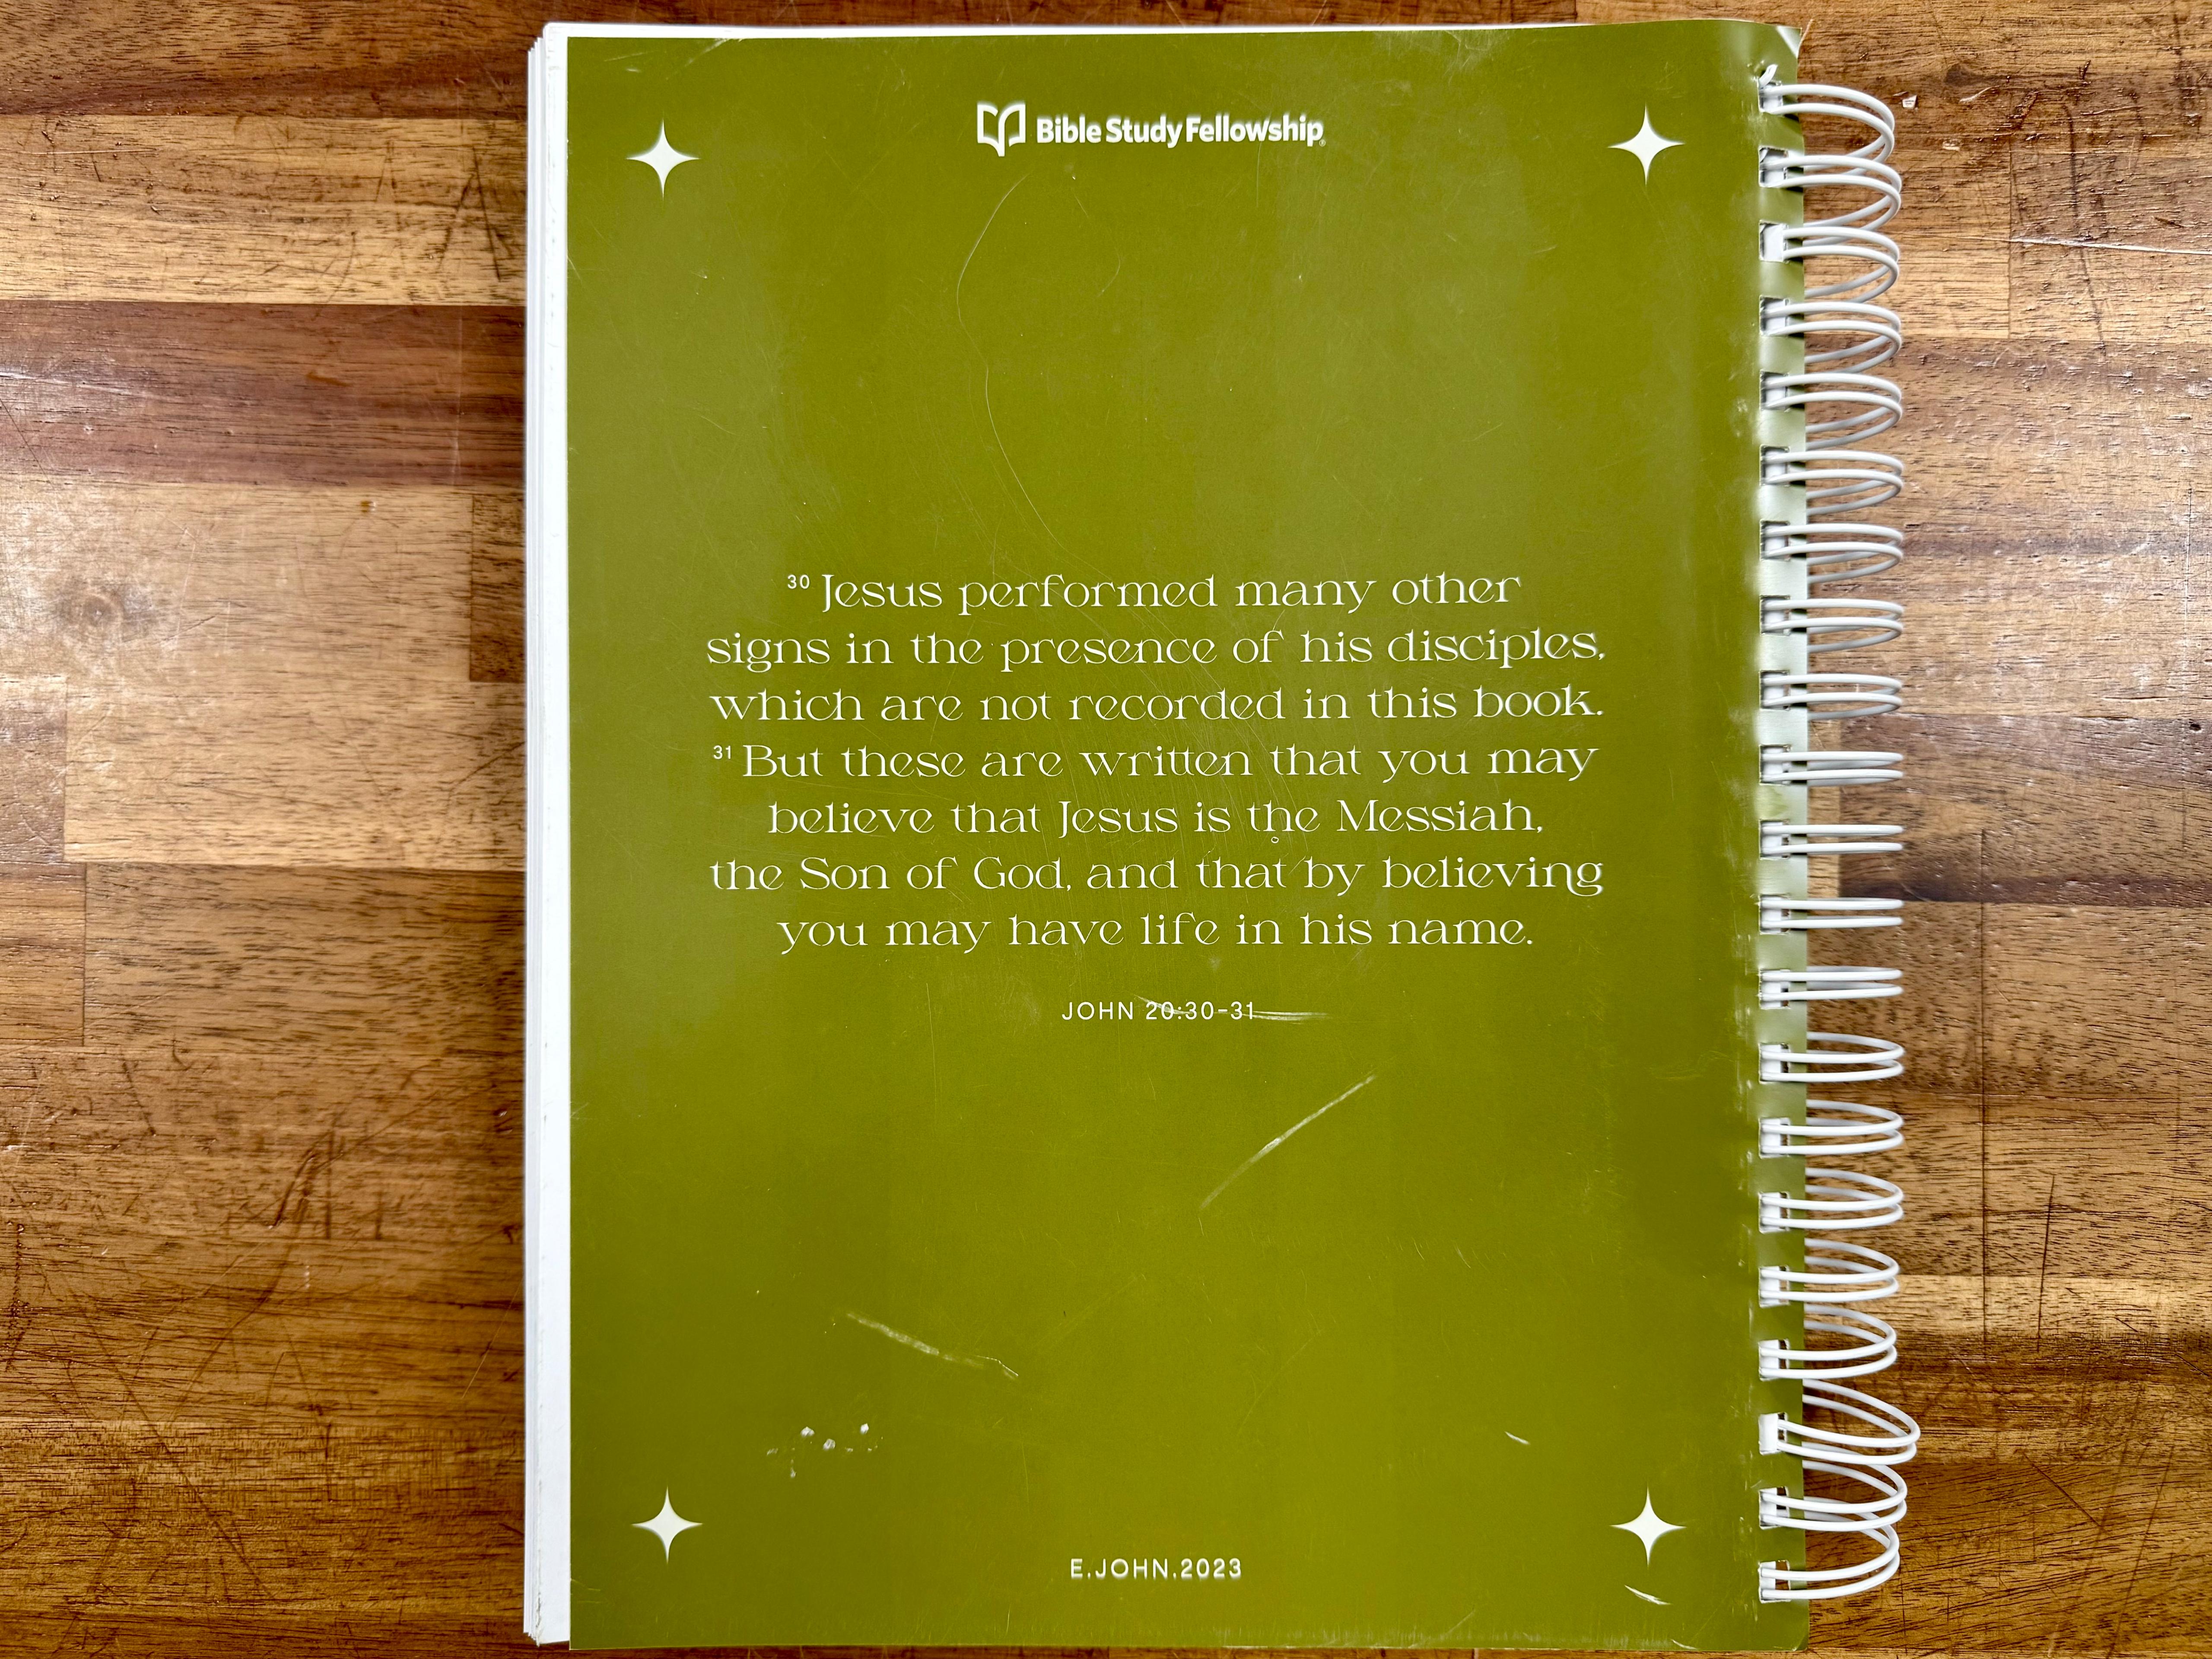 Bible Study Fellowship®
30 Jesus performed many other
signs in the presence of his disciples,
which are not recorded in this book.
31 But these are written that you may
believe that Jesus is the Messiah,
the Son of God, and that by believing
you may have life in his name.
JOHN 20:30-31
E.JOHN.2023